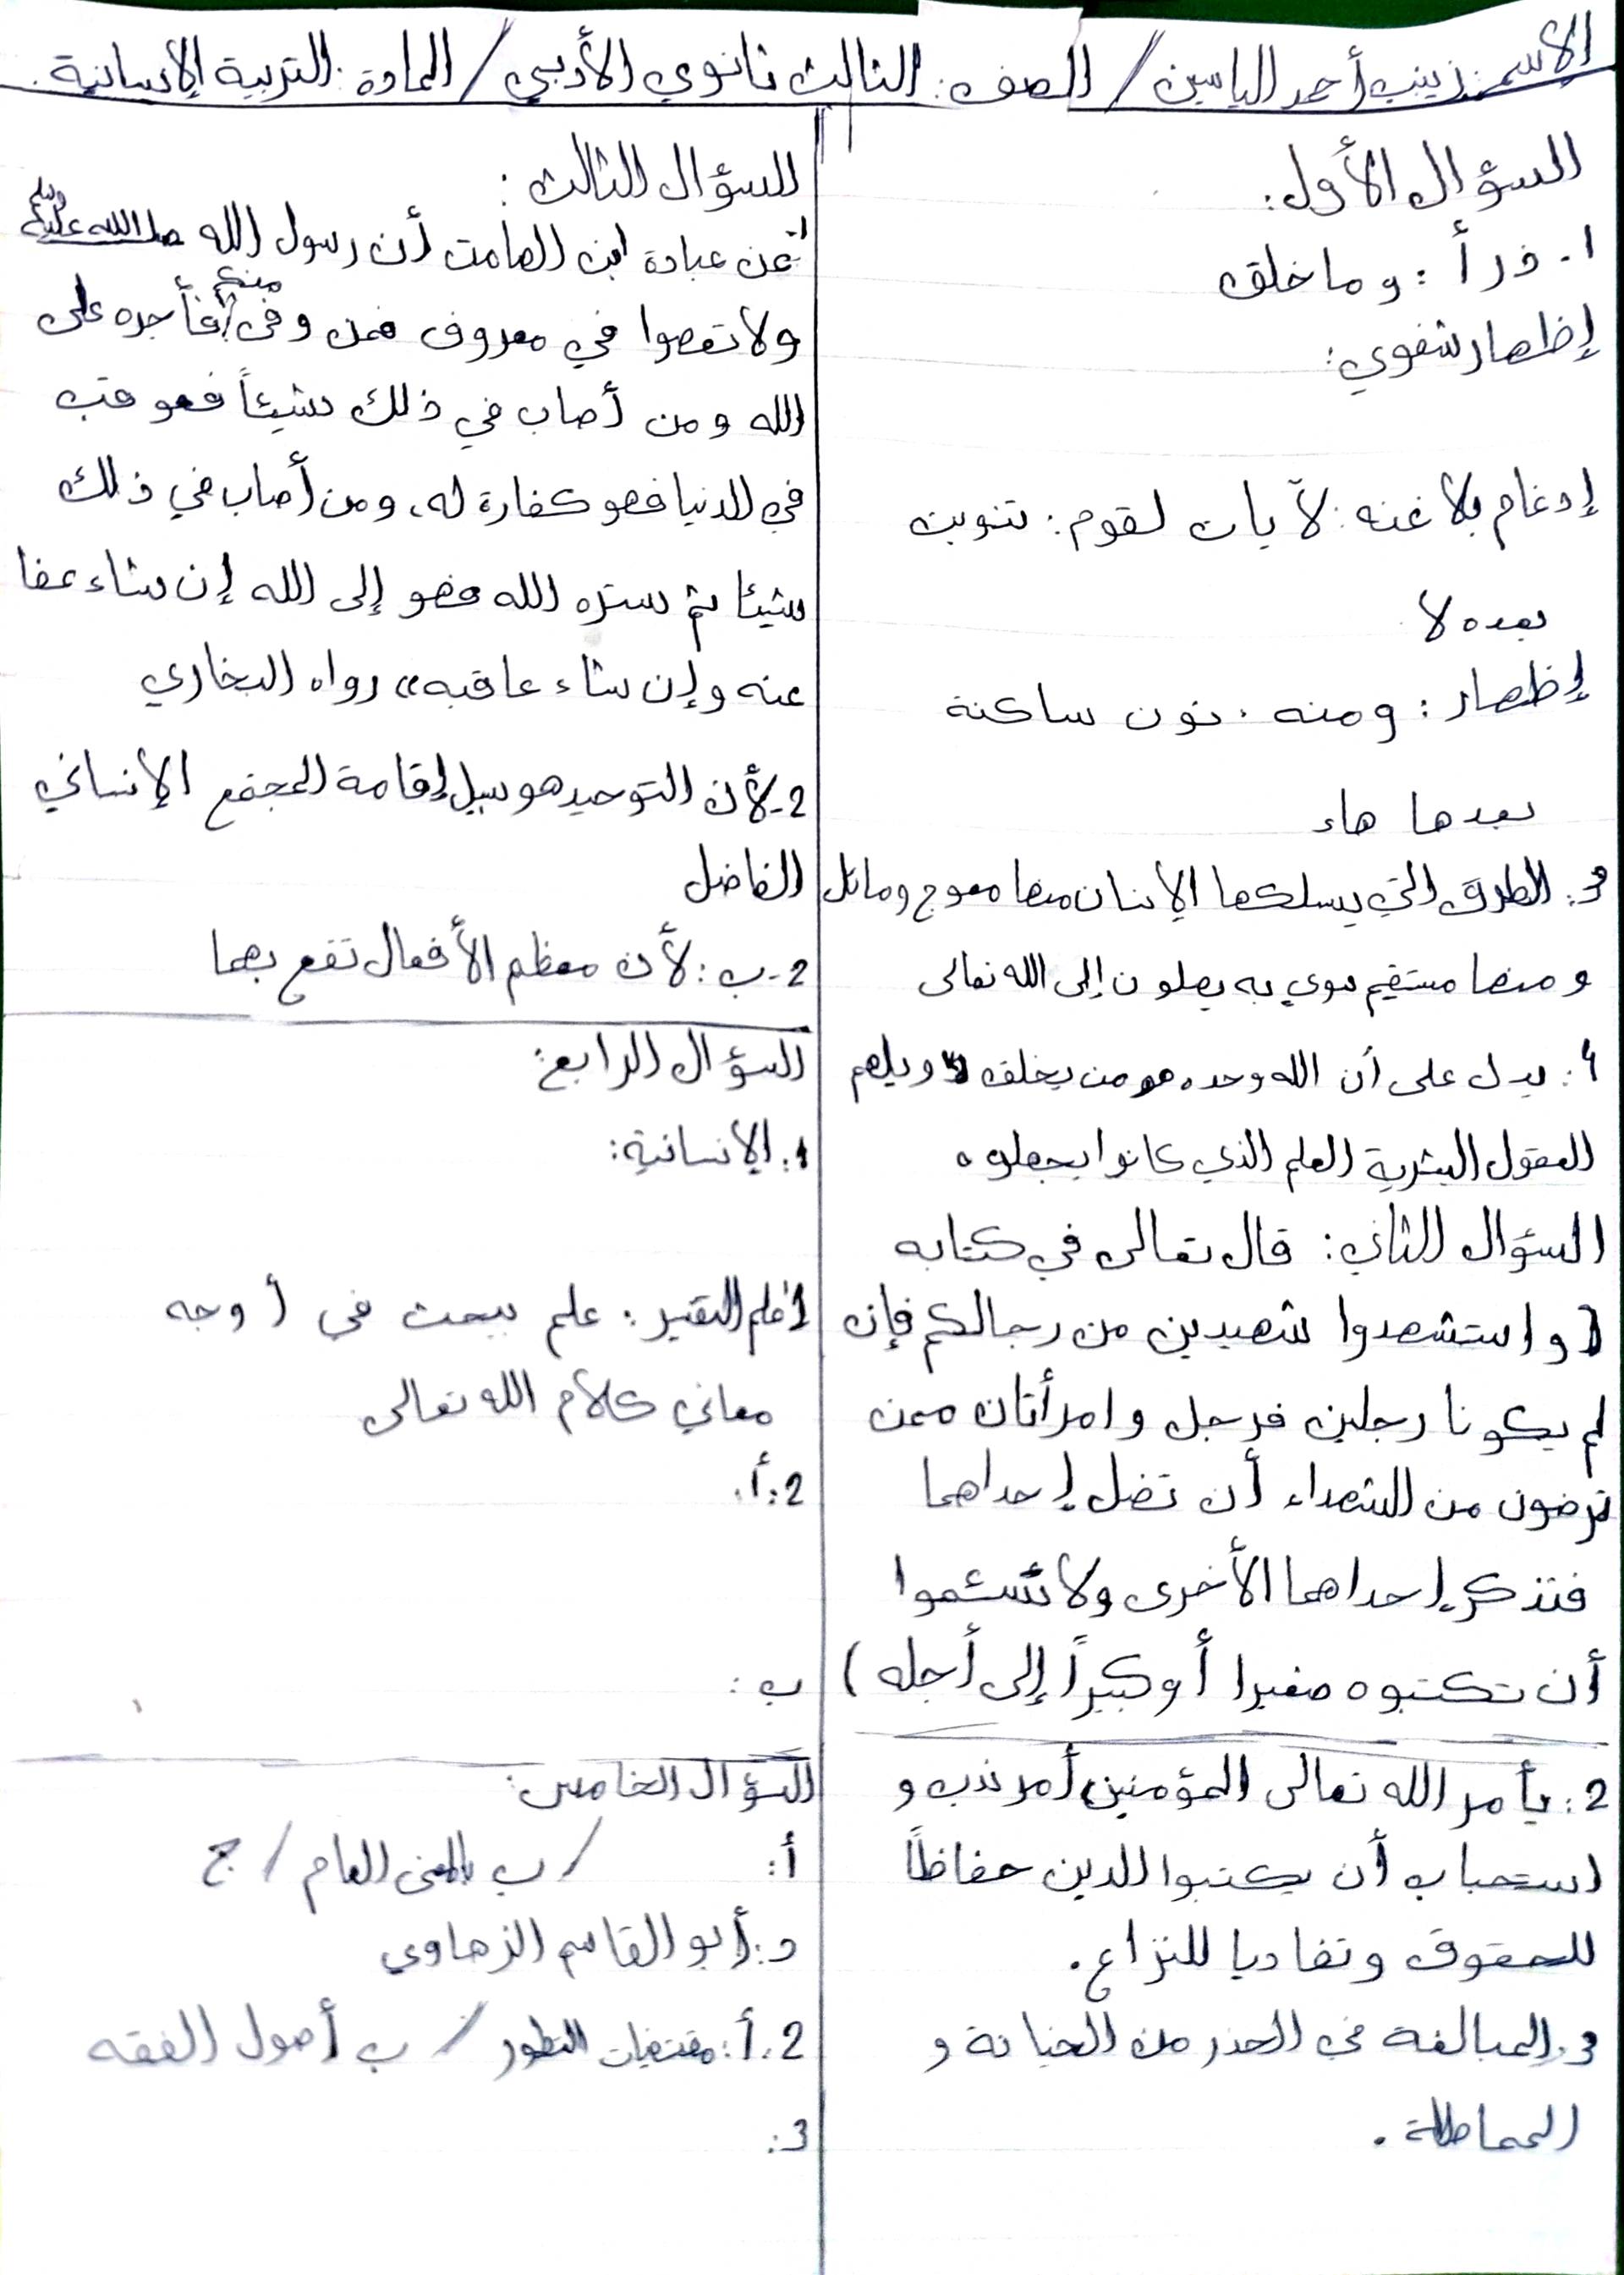 الاسم: زينب أحمد الياسين / الصف: الثالث ثانوي الأدبي / المادة: التربية الإسلامية.
السؤال الأول:
1. ذرأ : وما خلق
إظهار شفوي:
إدغام بلا غنه: لآيات لقوم: تنوين
بعده لا
إظهار: ومنه. نون ساكنة
بعدها هاء
3: الطرق التي يسلكها الإنسان منها معوج ومائل
ومنها مستقيم سوي به يصلون إلى الله تعالى
4: يدل على أن الله وحده هو من يخلق ويلهم
العقول البشرية العلم الذي كانوا يجهلوه
السؤال الثاني: قال تعالى في كتابه
(واستشهدوا شهيدين من رجالكم فإن
لم يكونا رجلين فرجل وامرأتان ممن
ترضون من الشهداء أن تضل إحداهما
فتذكر إحداهما الأخرى ولا تسئموا
أن تكتبوه صغيرا أو كبيراً إلى أجله)
2: يأمر الله تعالى المؤمنين أمر ندب و
استحباب أن يكتبوا الدين حفاظاً
للحقوق وتفاديا للنزاع.
3. المبالغة في الحذر من الخيانة و
المماطلة.
السؤال الثالث:
1. عن عبادة ابن الصامت أن رسول الله صلى الله عليه وسلم
ولا تعصوا في معروف فمن وفى منكم فأجره على
الله ومن أصاب في ذلك شيئاً فعوقب
في الدنيا فهو كفارة له، ومن أصاب في ذلك
شيئا ثم ستره الله فهو إلى الله إن شاء عفا
عنه وإن شاء عاقبه» رواه البخاري
2- لأن التوحيد هو سبيل إقامة المجتمع الإنساني
الفاضل
2- ب: لأن معظم الأفعال تقع بهما
السؤال الرابع:
1: الإنسانية:
علم التفسير: علم يبحث في أوجه
معاني كلام الله تعالى
2: أ.
ب:
السؤال الخامس:
أ: / ب بالمعنى العام / ج
د: أبو القاسم الزهاوي
2. أ: مقتضيات التطور / ب أصول الفقه
3: